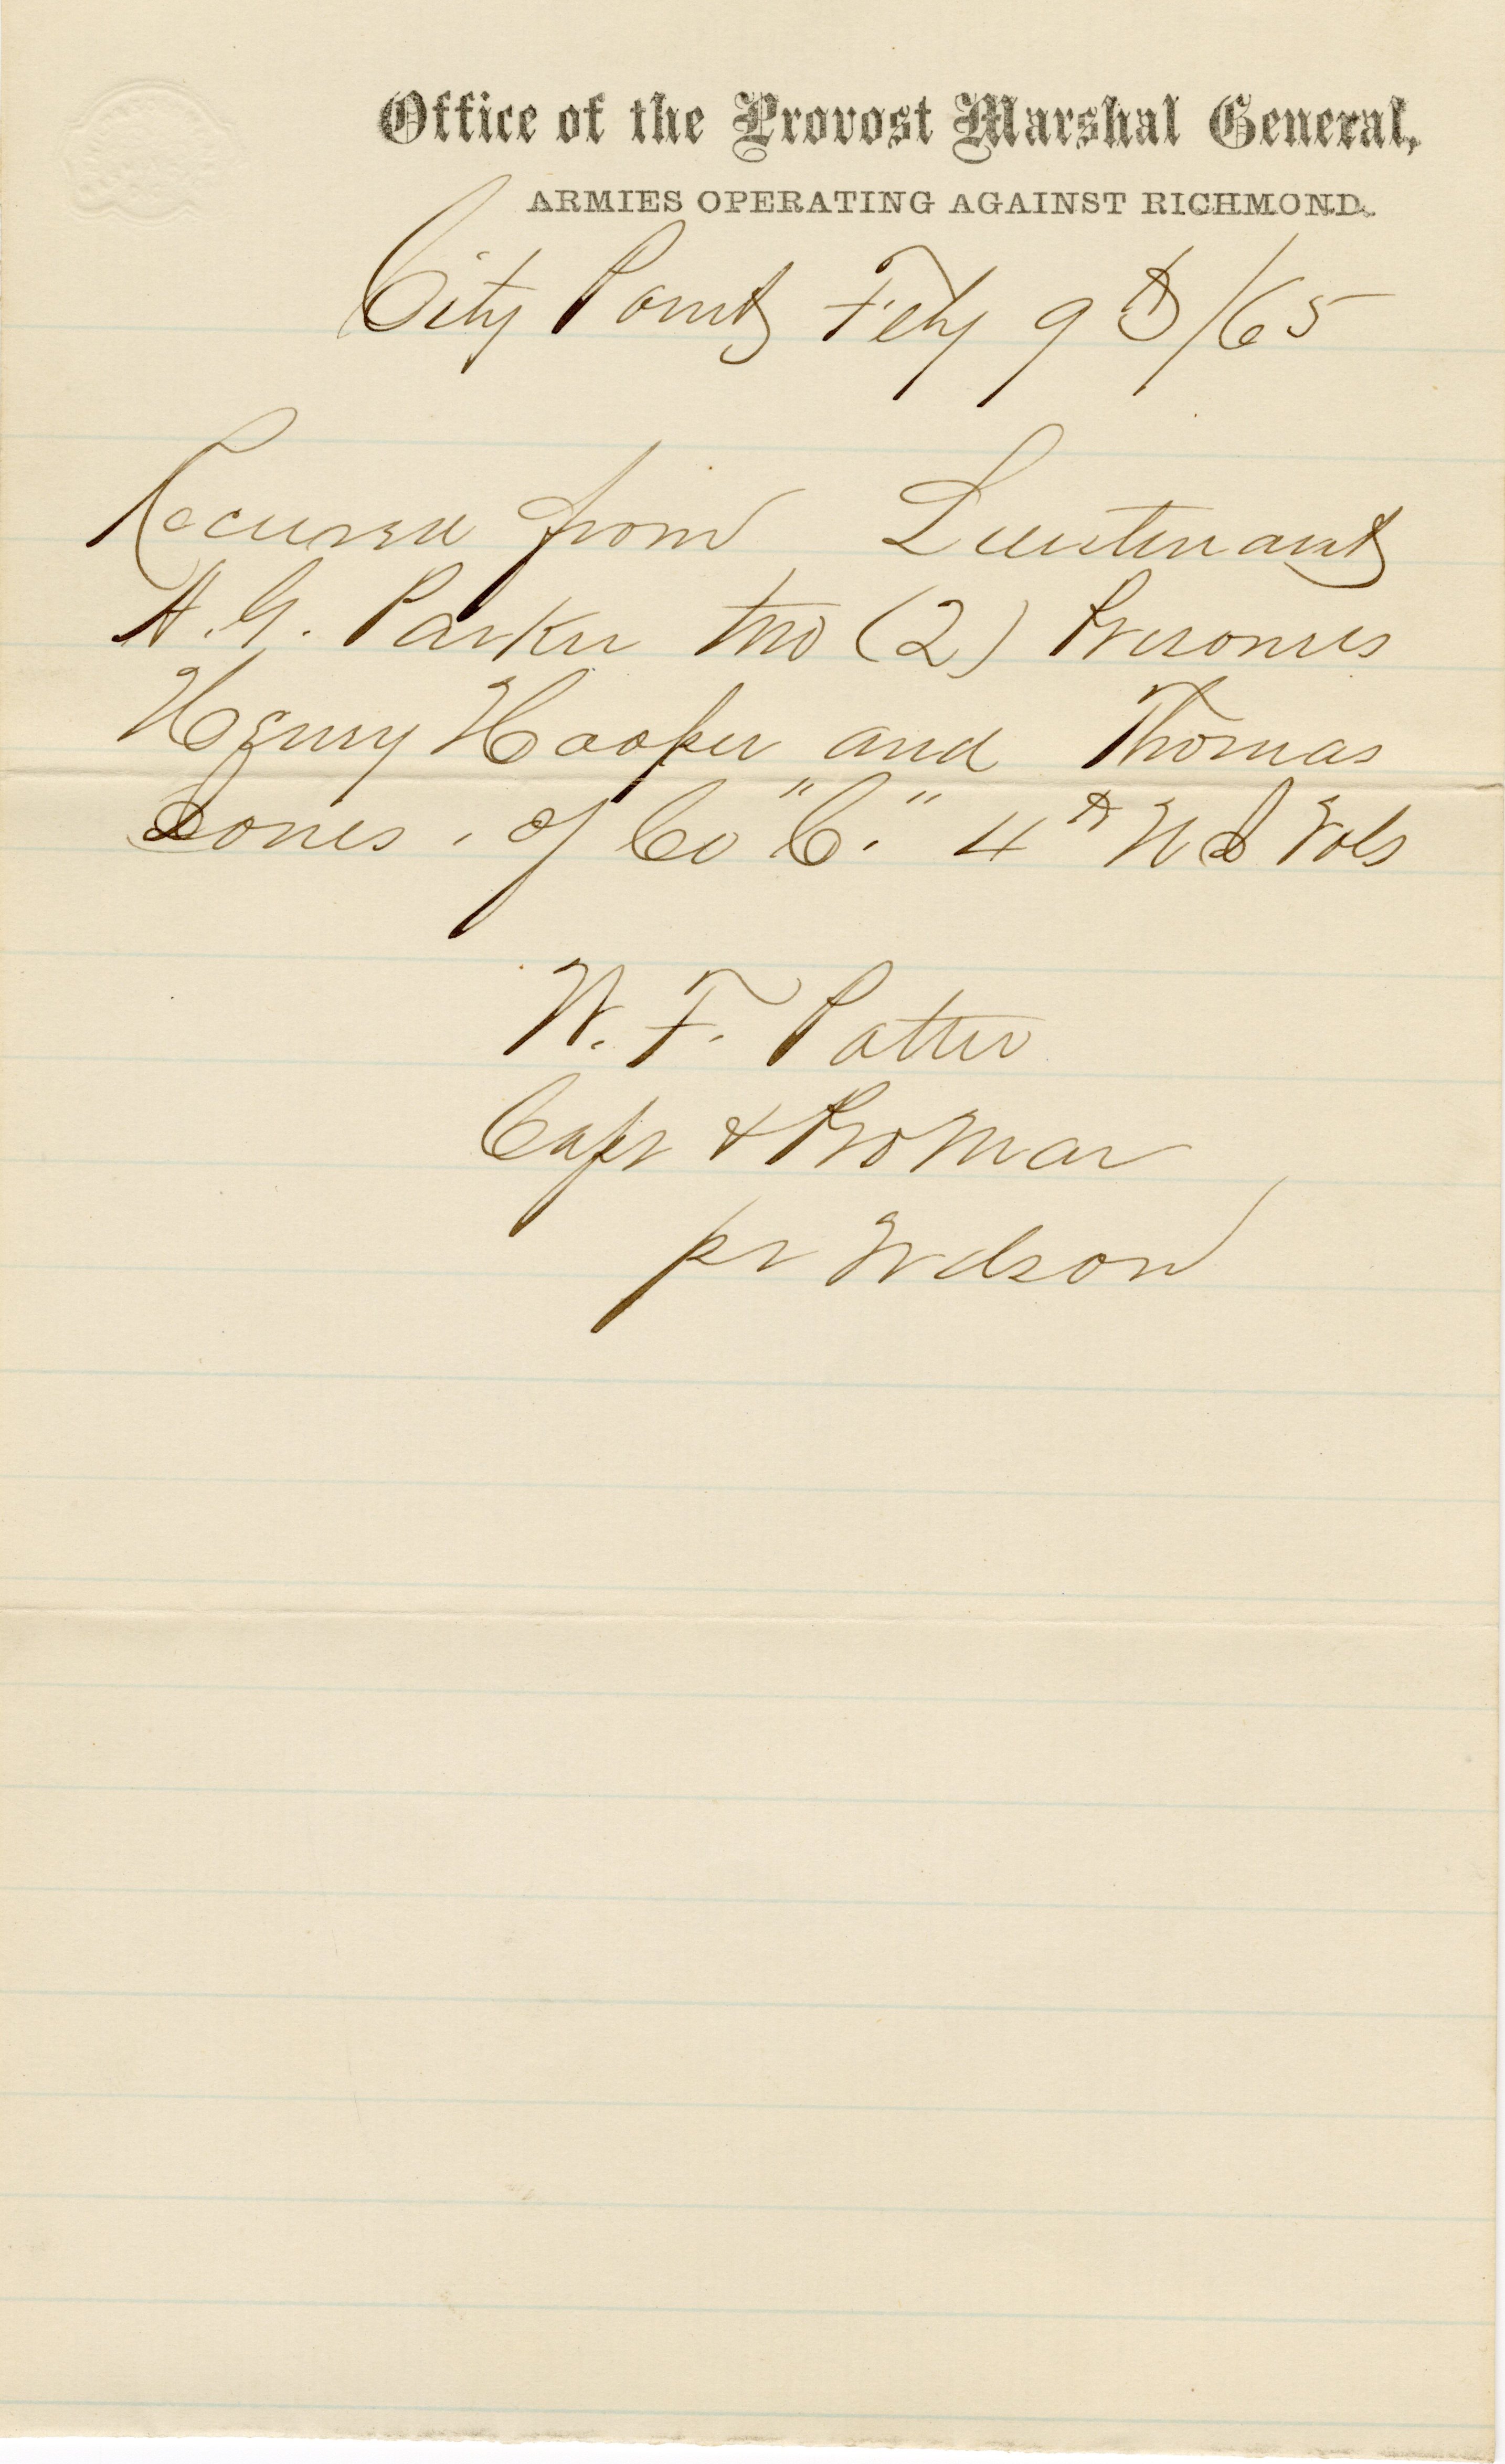 Office of the Provost Marshal General,
ARMIES OPERATING AGAINST RICHMOND.
City Point Feby 9th /65
Received from Lieutenant
A. G. Parker two (2) Prisoners
Henry Hooper and Thomas
Jones, of Co "C." 4th US Vols
W. F. Potter
Capt & Pro Mar
pr Wilson